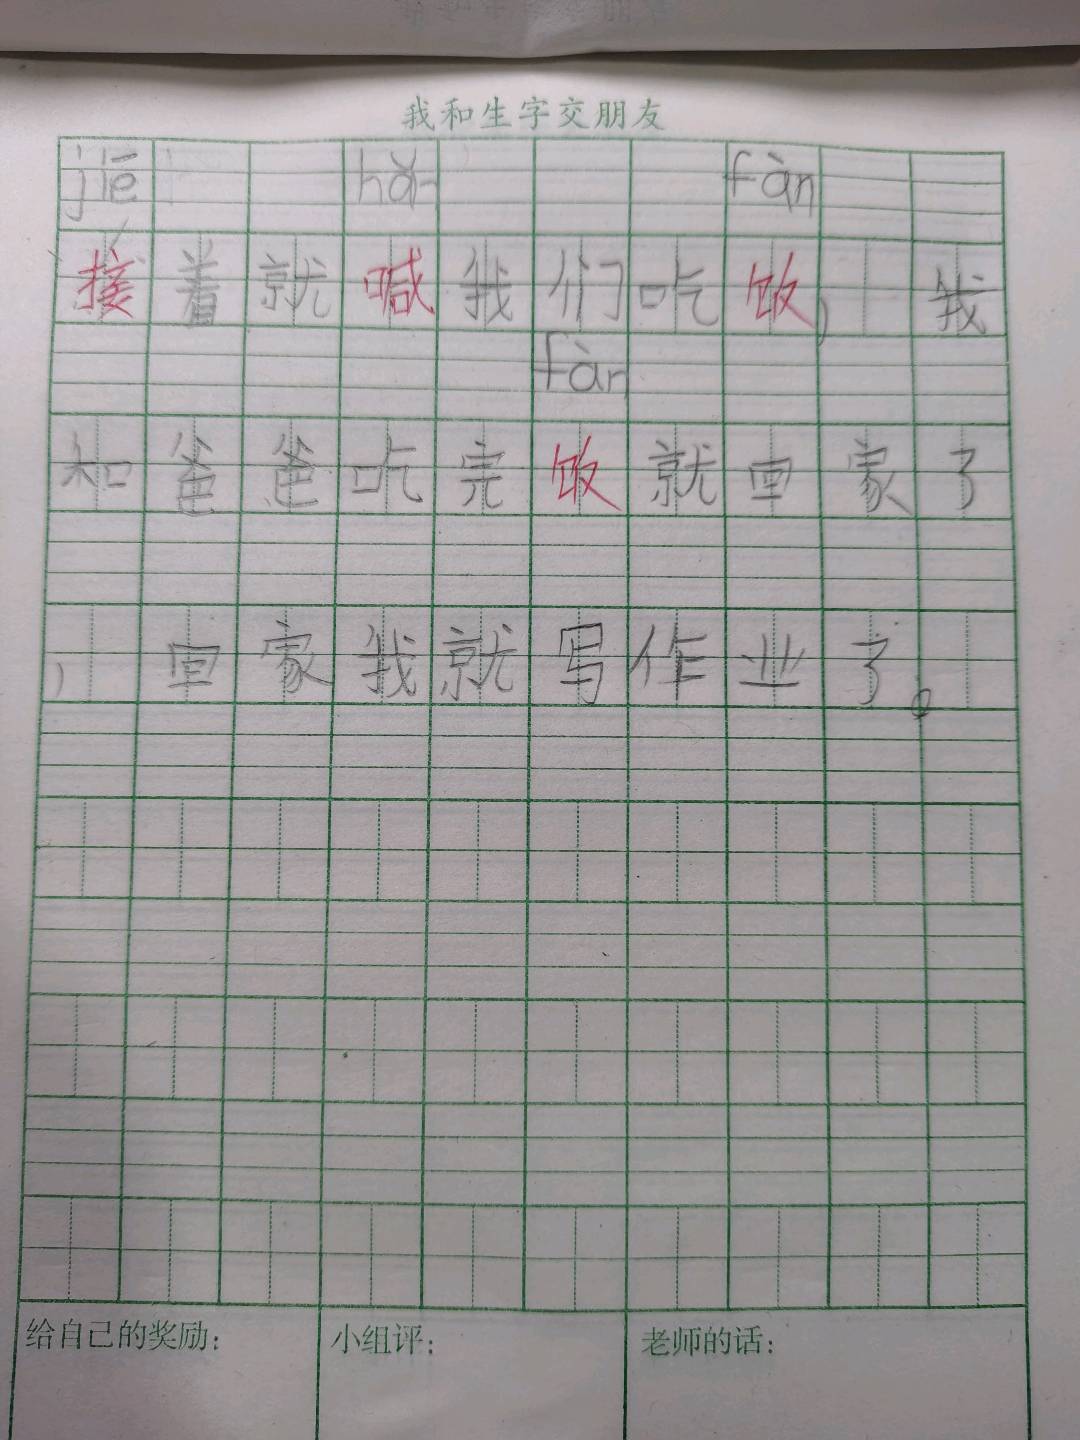 我和生字交朋友
jiē hǎn fàn
接着就喊我们吃饭，我
fàn
和爸爸吃完饭就回家了
，回家我就写作业了。
给自己的奖励：
小组评：
老师的话：